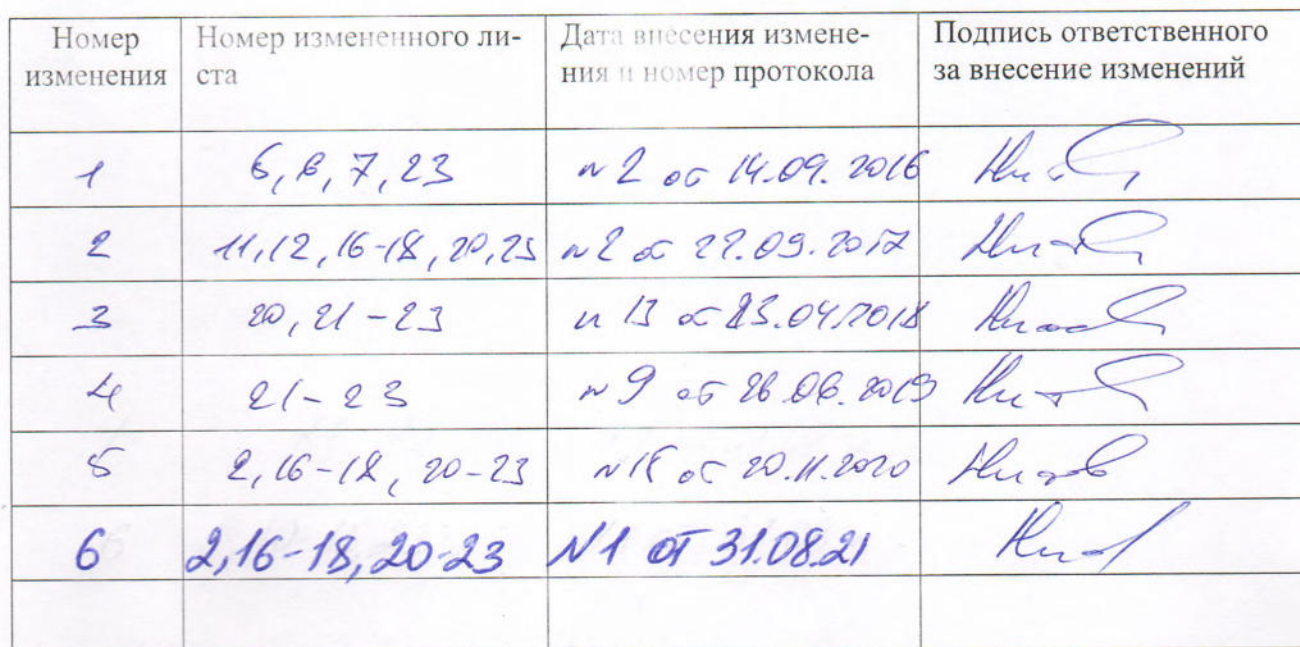 Номер изменения
Номер измененного ли-
ста
Дата внесения измене-
ния и номер протокола
Подпись ответственного
за внесение изменений
1 7, 23 N 2 от 14.09.2016
2 11, 12, 16-18, 20, 23 N 2 от 22.09.2017
3 20, 21-23 N 13 от 23.04.2018
4 21-23 N 9 от 26.06.2019
5 2, 16-18, 20-23 от 20.11.2020
6 2,16-18, 20-23 N1 от 31.08.21